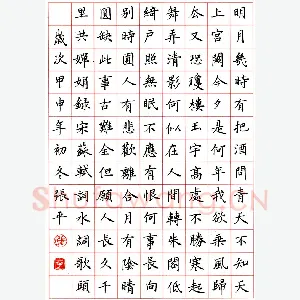 明月幾時有把酒問青天不知天
上宮闕今夕是何年我欲乘風歸
去又恐瓊樓玉宇高處不勝寒起
舞弄清影何似在人間轉朱閣低
綺戶照無眠不應有恨何事長向
別時圓人有悲歡離合月有陰晴
圓缺此事古難全但願人長久千
里共嬋娟錄宋蘇軾詞水調歌頭
歲次甲申年初冬張平